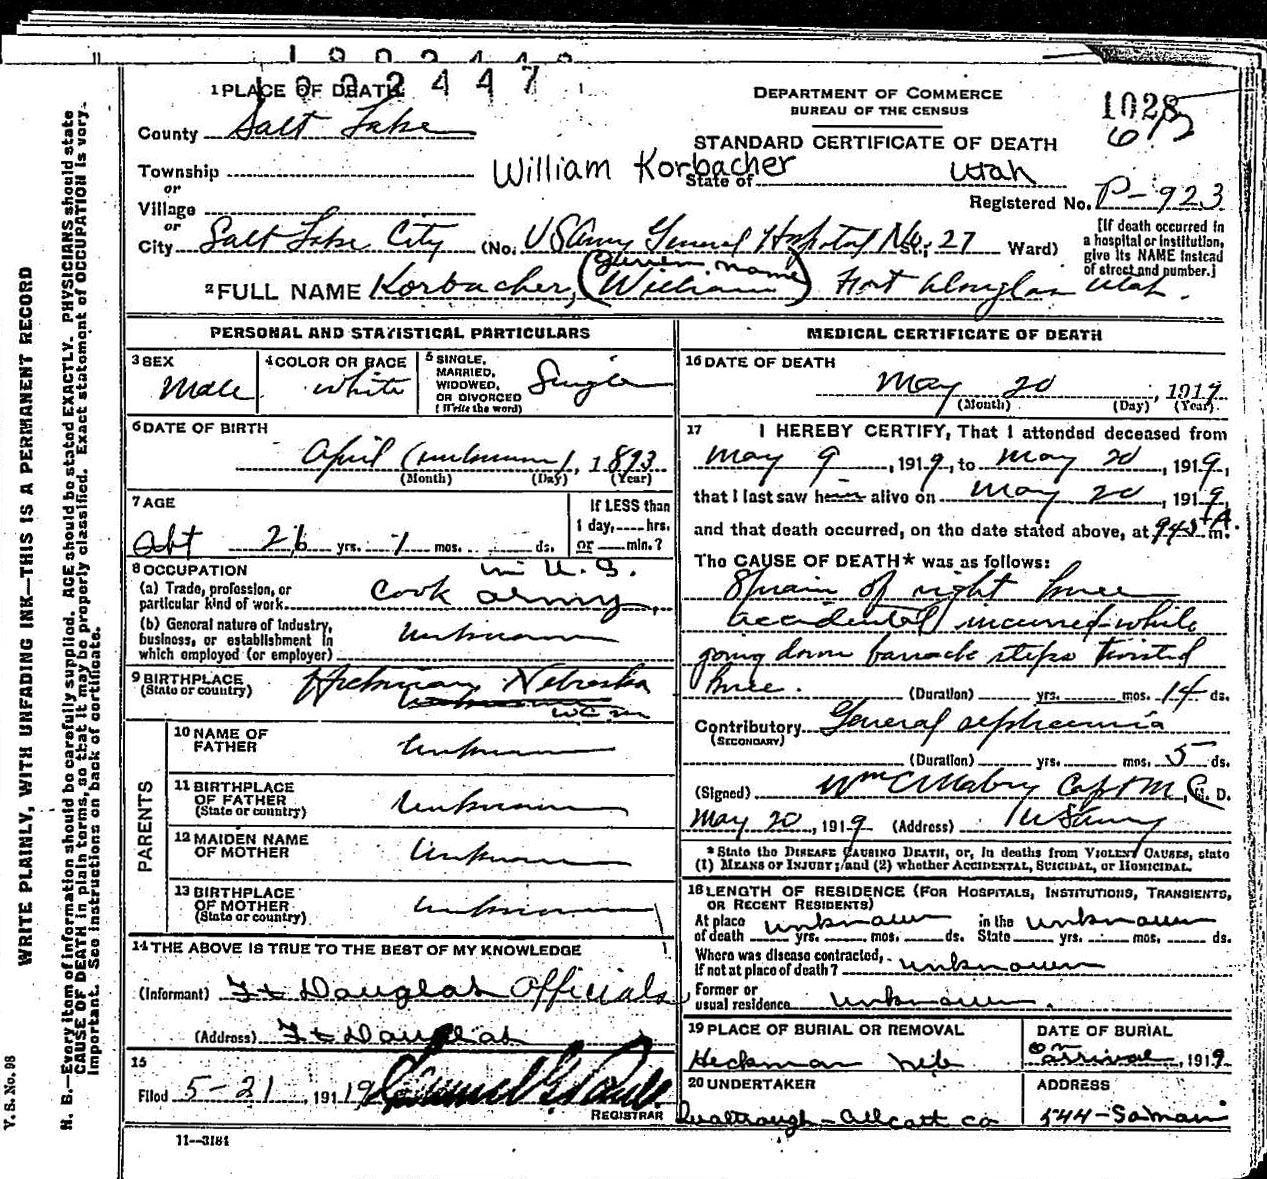 1922447
1 PLACE OF DEATH
County Salt Lake
Township
or
Village
or
City Salt Lake City (No. US Army General Hospital No. St.; 27 Ward)
DEPARTMENT OF COMMERCE
BUREAU OF THE CENSUS
STANDARD CERTIFICATE OF DEATH
William Korbacher
State of Utah
1028
Registered No. P-923
[If death occurred in a hospital or institution, give its NAME instead of street and number.]
2 FULL NAME Korbacher, (William) Fort Douglas Utah.
Given name
PERSONAL AND STATISTICAL PARTICULARS
3 SEX
Male
4 COLOR OR RACE
white
5 SINGLE, MARRIED, WIDOWED, OR DIVORCED (Write the word)
Single
6 DATE OF BIRTH
April (unknown), 1893
(Month) (Day) (Year)
7 AGE
abt 26 yrs. 1 mos. ds.
If LESS than 1 day, hrs. or min.?
8 OCCUPATION
(a) Trade, profession, or particular kind of work Cook in U.S. army,
(b) General nature of Industry, business, or establishment in which employed (or employer) unknown
9 BIRTHPLACE (State or country) Hickman, Nebraska
PARENTS
10 NAME OF FATHER unknown
11 BIRTHPLACE OF FATHER (State or country) unknown
12 MAIDEN NAME OF MOTHER unknown
13 BIRTHPLACE OF MOTHER (State or country) unknown
14 THE ABOVE IS TRUE TO THE BEST OF MY KNOWLEDGE
(Informant) Ft Douglas Officials
(Address) Ft Douglas
15
Filed 5-21, 1919
REGISTRAR
11—3184
MEDICAL CERTIFICATE OF DEATH
16 DATE OF DEATH
May 20, 1919
(Month) (Day) (Year)
17 I HEREBY CERTIFY, That I attended deceased from
May 9, 1919, to May 20, 1919,
that I last saw him alive on May 20, 1919,
and that death occurred, on the date stated above, at 945 A. m.
The CAUSE OF DEATH* was as follows:
Sprain of right knee
accidental incurred while
going down barrack steps twisted
knee. (Duration) yrs. mos. 14 ds.
Contributory General septicemia
(SECONDARY)
(Duration) yrs. mos. 5 ds.
(Signed) Wm C Mabry Capt M.C., M. D.
May 20, 1919 (Address) U S Army
* State the DISEASE CAUSING DEATH, or, in deaths from VIOLENT CAUSES, state
(1) MEANS OF INJURY; and (2) whether ACCIDENTAL, SUICIDAL, OR HOMICIDAL.
18 LENGTH OF RESIDENCE (FOR HOSPITALS, INSTITUTIONS, TRANSIENTS, OR RECENT RESIDENTS)
At place of death unknown yrs. mos. ds. In the State unknown yrs. mos. ds.
Where was disease contracted, if not at place of death? unknown
Former or usual residence unknown.
19 PLACE OF BURIAL OR REMOVAL
Heckman Neb
DATE OF BURIAL
on arrival, 1919
20 UNDERTAKER
Qualtrough-Allcott Co
ADDRESS
544-So Main
V. S. No. 98
WRITE PLAINLY, WITH UNFADING INK—THIS IS A PERMANENT RECORD
N. B.—Every item of information should be carefully supplied. AGE should be stated EXACTLY. PHYSICIANS should state
CAUSE OF DEATH in plain terms, so that it may be properly classified. Exact statement of OCCUPATION is very
important. See instructions on back of certificate.